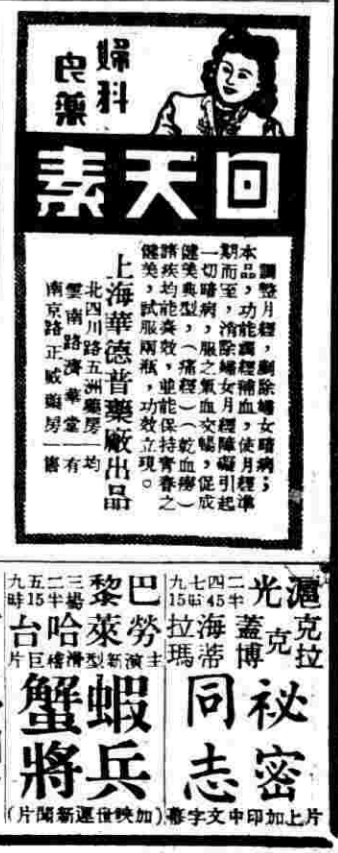 婦科
良藥
回天素
調整月經，剷除婦女暗病；
本品，功能調經補血，使月經準
期而至，消除婦女月經障礙引起
一切暗病，服之氣血交暢，促成
健美典型，（痛經）（乾血癆）
諸疾均能奏效，並能保持青春之
健美，試服兩瓶，功效立現。
上海華德普藥廠出品
北四川路五洲藥房
雲南路濟華堂
南京路正威藥房
均有售
滬光
二半
四45
七時
九15
克拉克蓋博
海蒂拉瑪
祕密
同志
片上加印中文字幕
巴黎
三場
二半
五15
九時
勞萊哈台
主演新型滑稽巨片
蝦兵
蟹將
（加映世運新聞片）